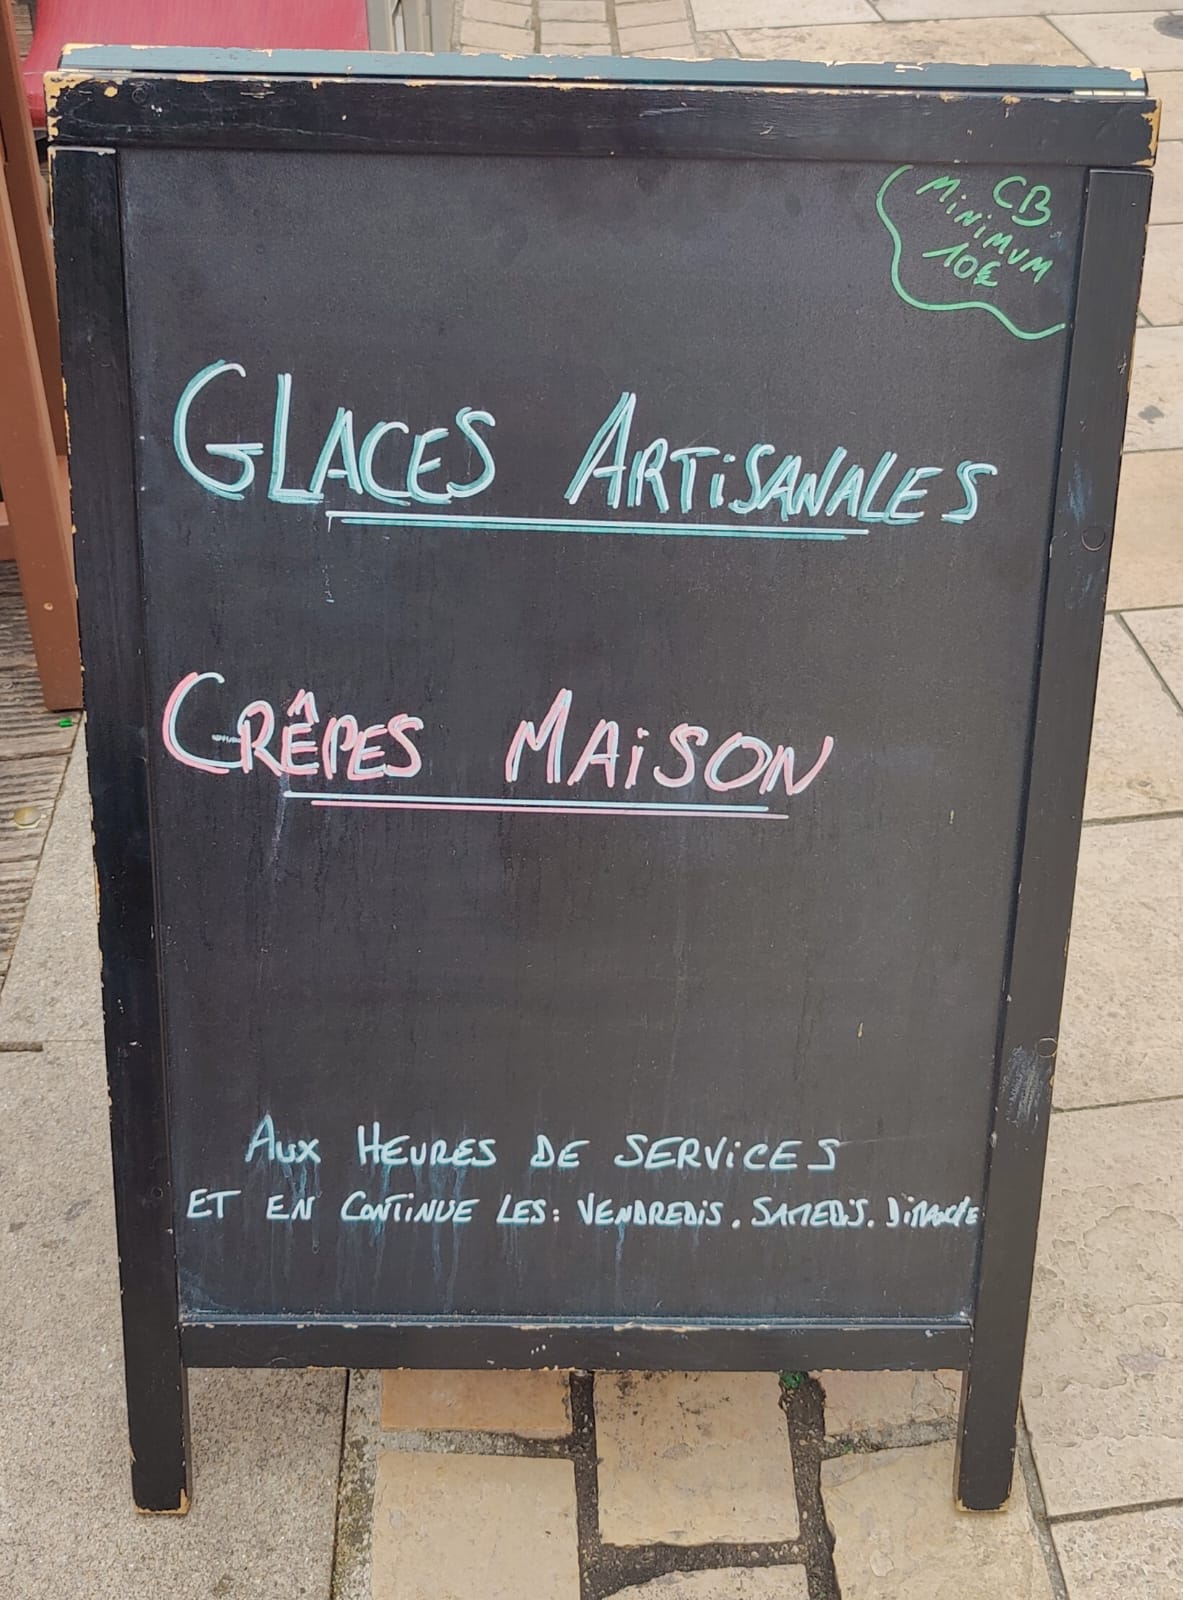 CB
MINIMUM
10€
GLACES ARTISANALES
CRÊPES MAISON
AUX HEURES DE SERVICES
ET EN CONTINUE LES: VENDREDIS. SAMEDIS. DIMANCHE